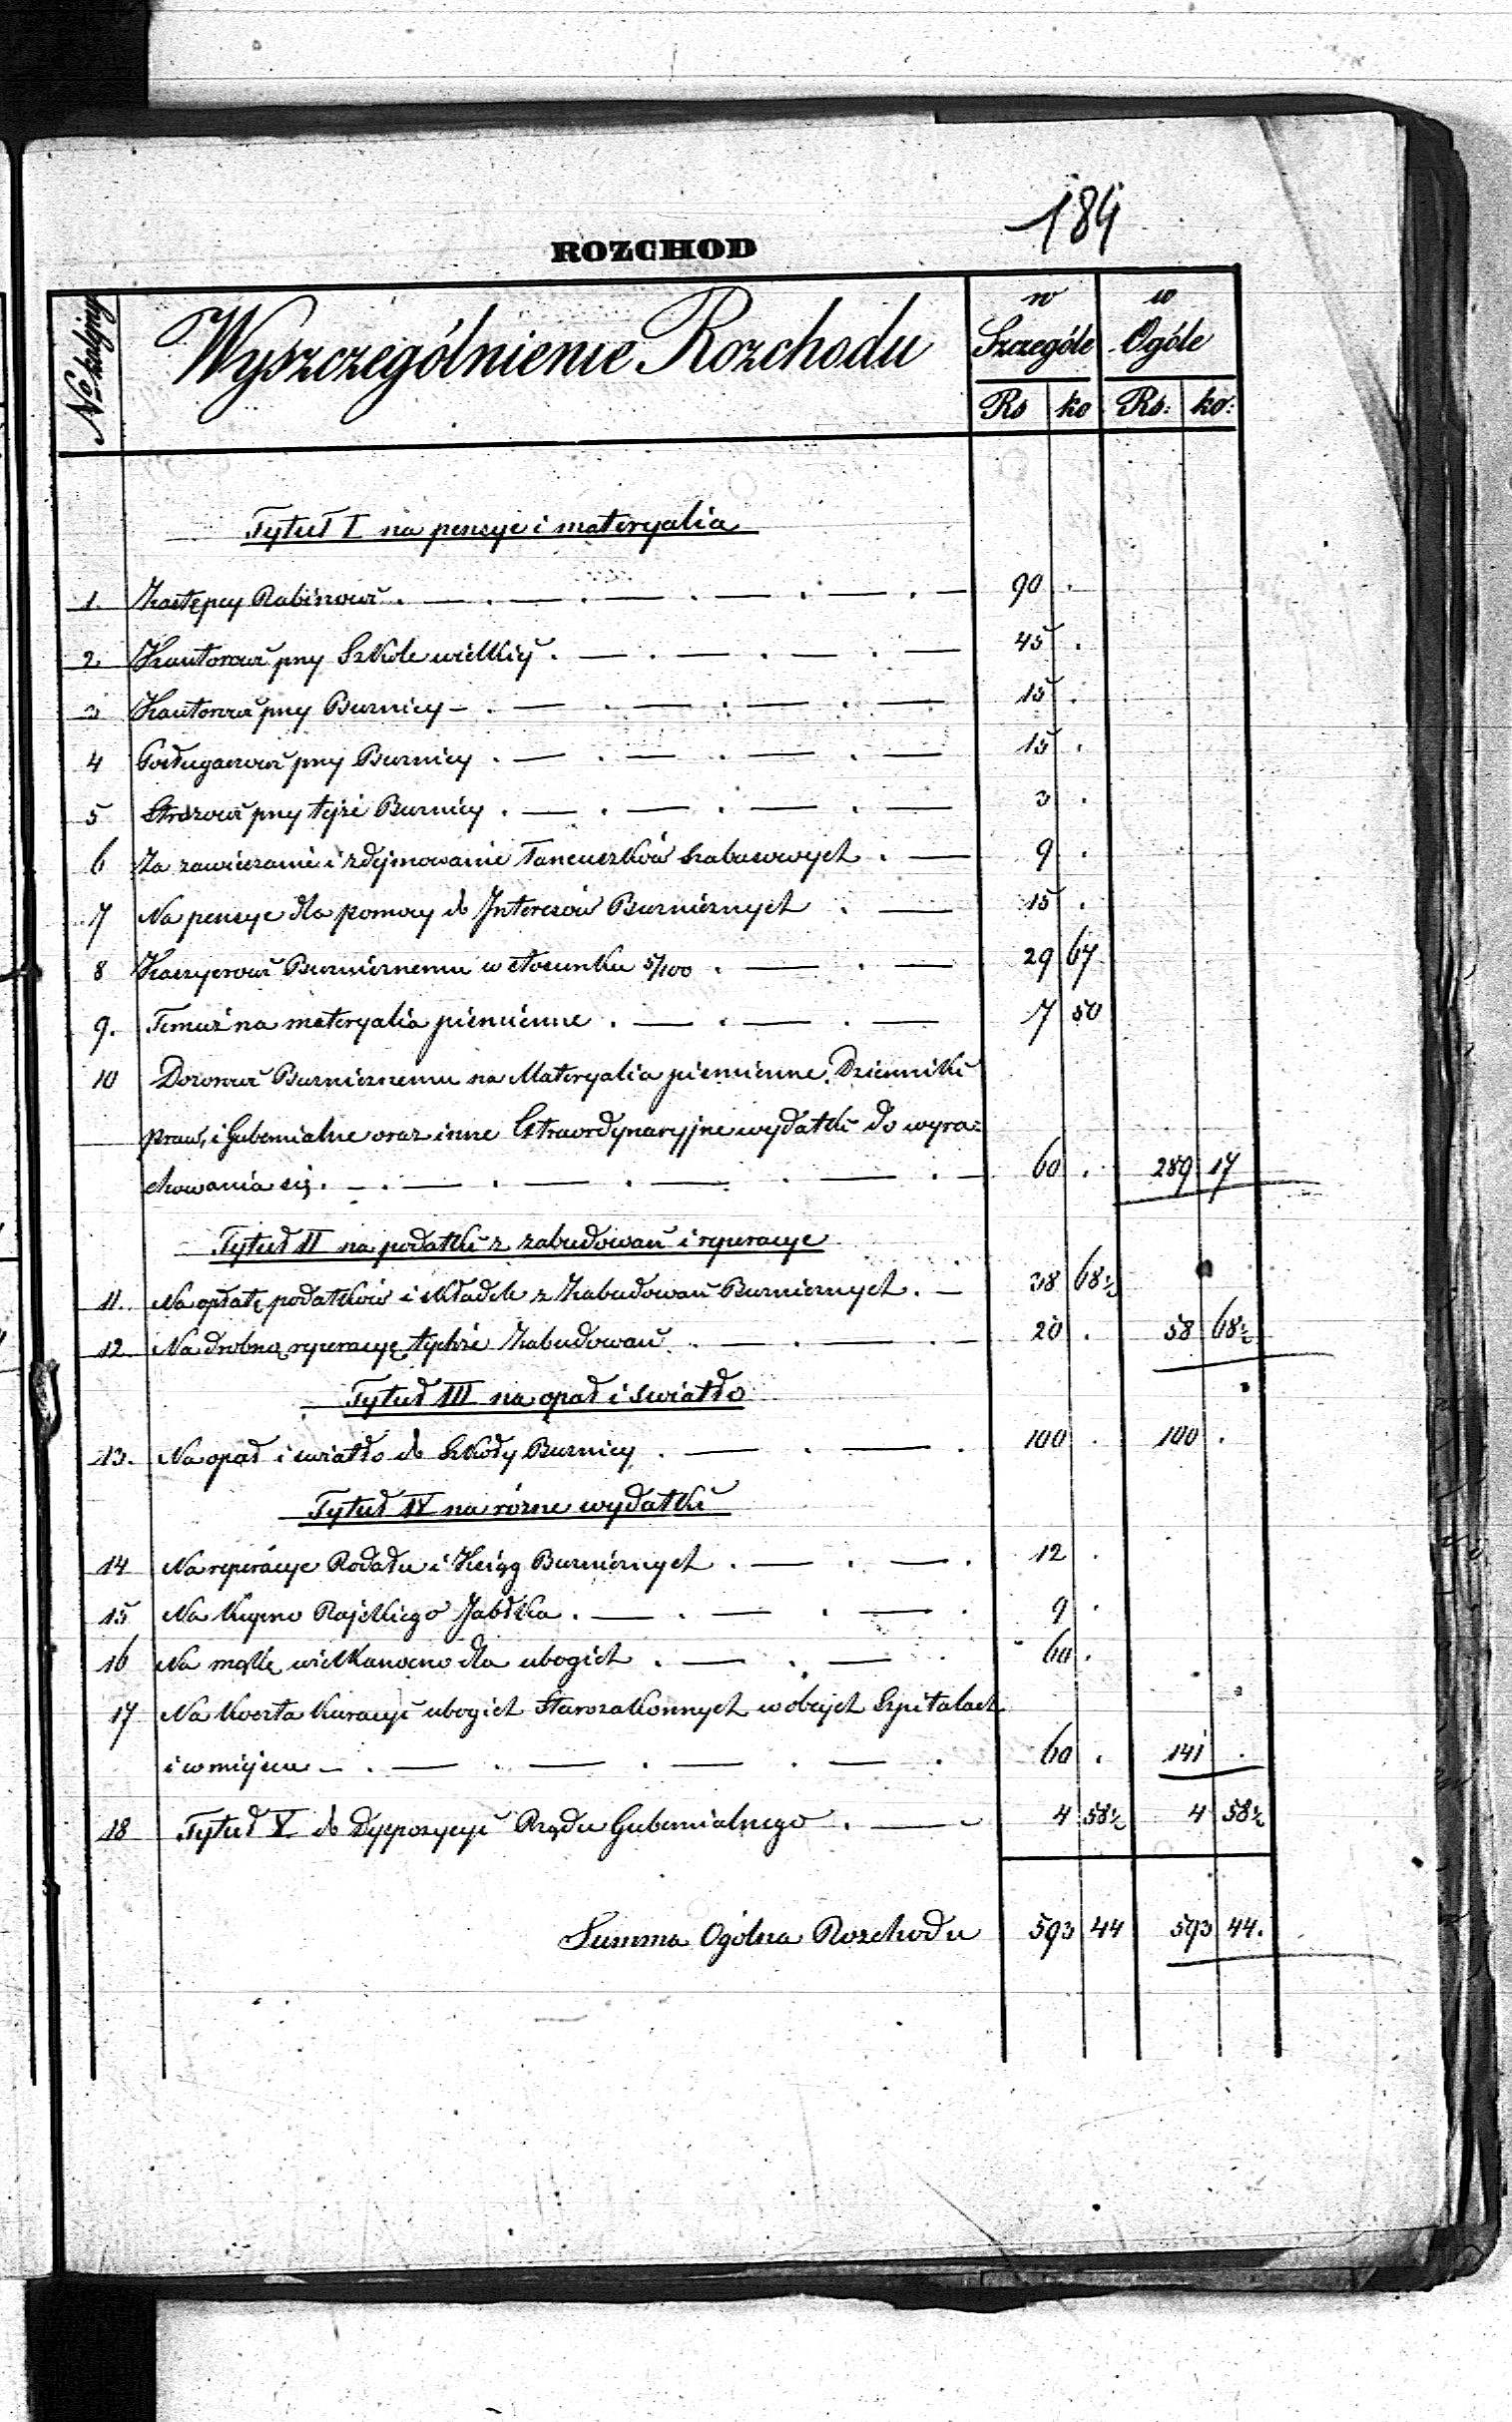 184
ROZCHOD
No kolejny
Wyszczególnienie Rozchodu
w Szczególe
w Ogóle
Rs ko Rs: ko:
Tytuł I na pensye i materyalia
1. Zastępcy Rabinowi . — . — . — 90 .
2. Kantorowi przy Szkole wielkiy . — . — 45 .
3 Kantorowi przy Buznicy — . — . — 15 .
4 Posługaczowi przy Buznicy . — . — 15 .
5 Strózowi przy tejże Buznicy . — . — 3 .
6 Za zawieszanie i zdejmowanie łancuszków szabasowych . — 9 .
7 Na pensye dla pomocy do Interesów Buznicznych . — 15 .
8 Kassyerowi Buznicznemu w stosunku 5/100 . — . — 29 67
9. Temuż na materyalia piśmienne . — . — 7 50
10 Dozorowi Buznicznemu na Materyalia piśmienne, Dzienniki
praw, i Gubernialne oraz inne Extraordynaryjne wydatki do wyra=
chowania się . — . — . — 60 . 289 17
Tytuł II na podatki z zabudowań i reperacye
11. Na opłatę podatków i składek z Zabudowań Buznicznych . — 38 68½
12. Na drobną reperacyę tychże Zabudowań . — . — 20 . 58 68½
Tytuł III na opał i światło
13. Na opał i światło do Szkoły Buznicy . — . — . 100 . 100 .
Tytuł IV na różne wydatki
14 Na reperacye Rodału i Ksiąg Buznicznych . — . — . 12 .
15 Na kupno Rajskiego Jabłka . — . — . 9 .
16 Na mąkę wielkanocno dla ubogich . — . — . 60 .
17 Na koszta kuracyi ubogich Starozakonnych w obcych Szpitalach
i w miejscu — . — . — . 60 . 141 .
18 Tytuł V do Dyspozycyi Rządu Gubernialnego . — 4 58½ 4 58½
Summa Ogólna Rozchodu 593 44 593 44.